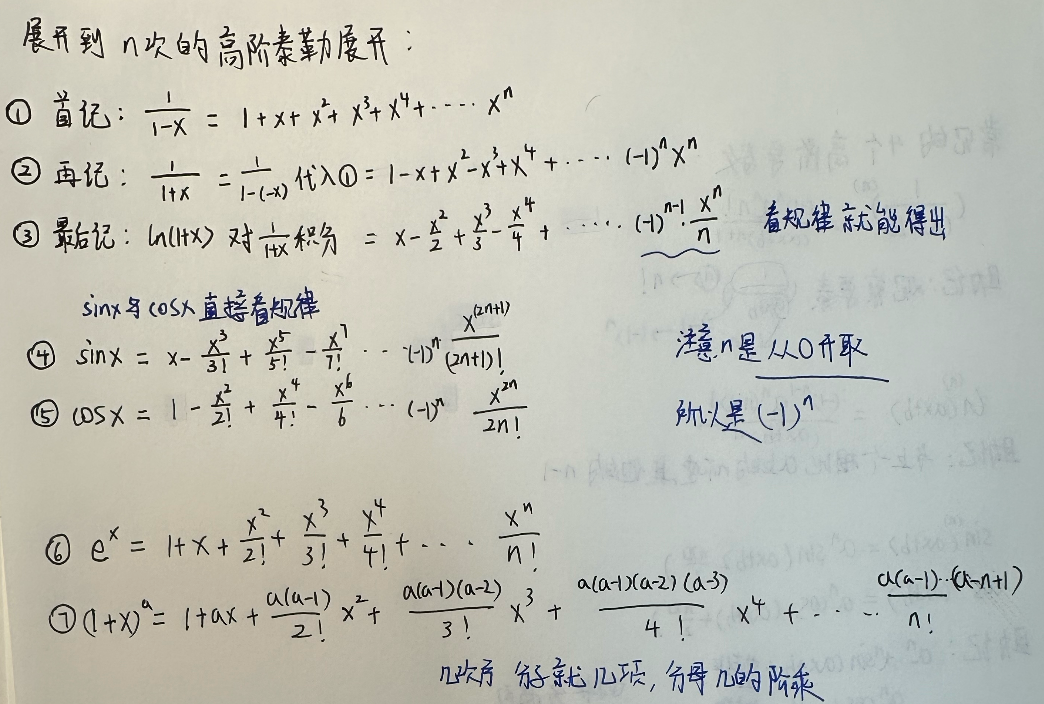 展开到 n次的高阶泰勒展开：
① 首记：1/(1-x) = 1+x+x²+x³+x⁴+····xⁿ
② 再记：1/(1+x) = 1/(1-(-x)) 代入① = 1-x+x²-x³+x⁴+·····(-1)ⁿxⁿ
③ 最后记：ln(1+x) 对 1/(1+x) 积分 = x-x²/2+x³/3-x⁴/4+······(-1)ⁿ⁻¹·xⁿ/n 看规律就能得出
sinx与cosx直接看规律
④ sinx = x-x³/3!+x⁵/5!-x⁷/7!··(-1)ⁿ x⁽²ⁿ⁺¹⁾/(2n+1)! 注意n是从0开取
⑤ cosx = 1-x²/2!+x⁴/4!-x⁶/6···(-1)ⁿ x²ⁿ/2n! 所以是(-1)ⁿ
⑥ eˣ = 1+x+x²/2!+x³/3!+x⁴/4!+··· xⁿ/n!
⑦ (1+x)ᵃ = 1+ax+a(a-1)/2! x²+a(a-1)(a-2)/3! x³+a(a-1)(a-2)(a-3)/4! x⁴+····a(a-1)··(a-n+1)/n!
几次方 分子就几项，分母几的阶乘